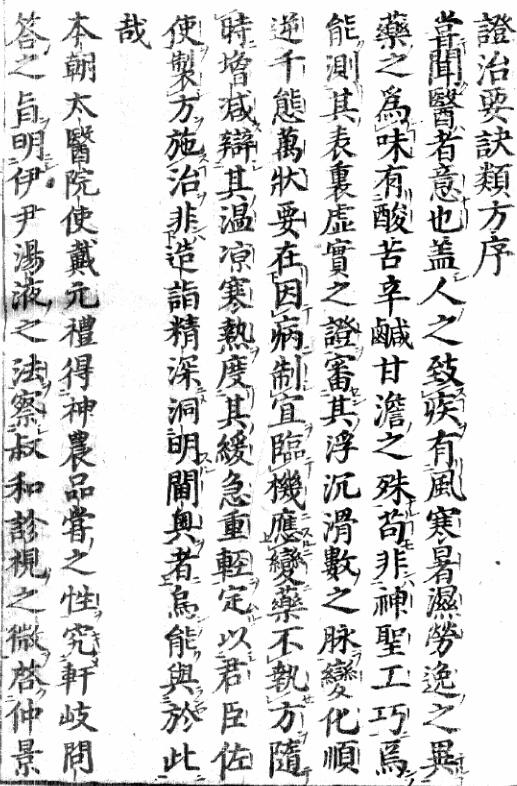 證治要訣類方序
嘗聞醫者意也盖人之致疾有風寒暑濕勞逸之異
藥之爲味有酸苦辛鹹甘澹之殊苟非神聖工巧焉
能測其表裏虛實之證審其浮沉滑數之脉變化順
逆千態萬狀要在因病制宜臨機應變藥不執方隨
時增减辯其温凉寒熱度其緩急重輕定以君臣佐
使製方施治非造詣精深洞明閫奥者烏能與於此
哉
本朝太醫院使戴元禮得神農品嘗之性究軒岐問
答之旨明伊尹湯液之法察叔和診視之微啓仲景